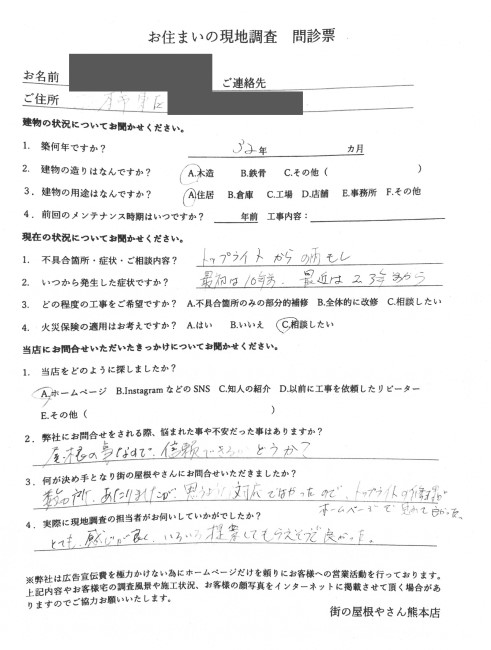 お住まいの現地調査　問診票
お名前
ご連絡先
ご住所　市東区
建物の状況についてお聞かせください。
1. 築何年ですか？　32年　カ月
2. 建物の造りはなんですか？　A.木造　B.鉄骨　C.その他（　）
3. 建物の用途はなんですか？　A.住居　B.倉庫　C.工場　D.店舗　E.事務所　F.その他
4. 前回のメンテナンス時期はいつですか？　年前　工事内容：
現在の状況についてお聞かせください。
1. 不具合箇所・症状・ご相談内容？　トップライトからの雨もし
2. いつから発生した症状ですか？　最初は10年前、最近は2 3年前から
3. どの程度の工事をご希望ですか？ A.不具合箇所のみの部分的補修 B.全体的に改修 C.相談したい
4. 火災保険の適用はお考えですか？ A.はい　B.いいえ　C.相談したい
当店にお問合せいただいたきっかけについてお聞かせください。
1. 当店をどのように探しましたか？
A.ホームページ　B.InstagramなどのSNS　C.知人の紹介　D.以前に工事を依頼したリピーター
E.その他（　）
2. 弊社にお問合せをされる際、悩まれた事や不安だった事はありますか？
屋根の事なので、信頼できるか どうか？
3. 何が決め手となり街の屋根やさんにお問合せいただきましたか？
数ヶ所、あたりましたが、思うような対応ではなかったので、トップライトの
ホームページで見れて良かった。
4. 実際に現地調査の担当者がお伺いしていかがでしたか？
とても感じが良く、いろいろ提案してもらえそうで良かった。
※弊社は広告宣伝費を極力かけない為にホームページだけを頼りにお客様への営業活動を行っております。
上記内容やお客様宅の調査風景や施工状況、お客様の顔写真をインターネットに掲載させて頂く場合があ
りますのでご協力お願いいたします。
街の屋根やさん熊本店